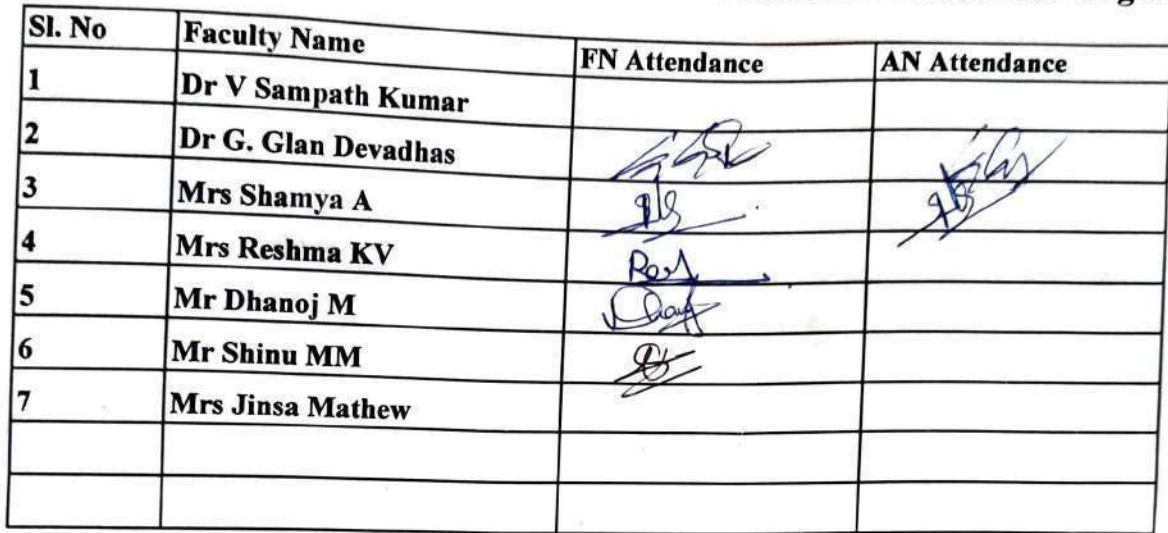 Sl. No Faculty Name FN Attendance AN Attendance
1 Dr V Sampath Kumar
2 Dr G. Glan Devadhas
3 Mrs Shamya A
4 Mrs Reshma KV
5 Mr Dhanoj M
6 Mr Shinu MM
7 Mrs Jinsa Mathew